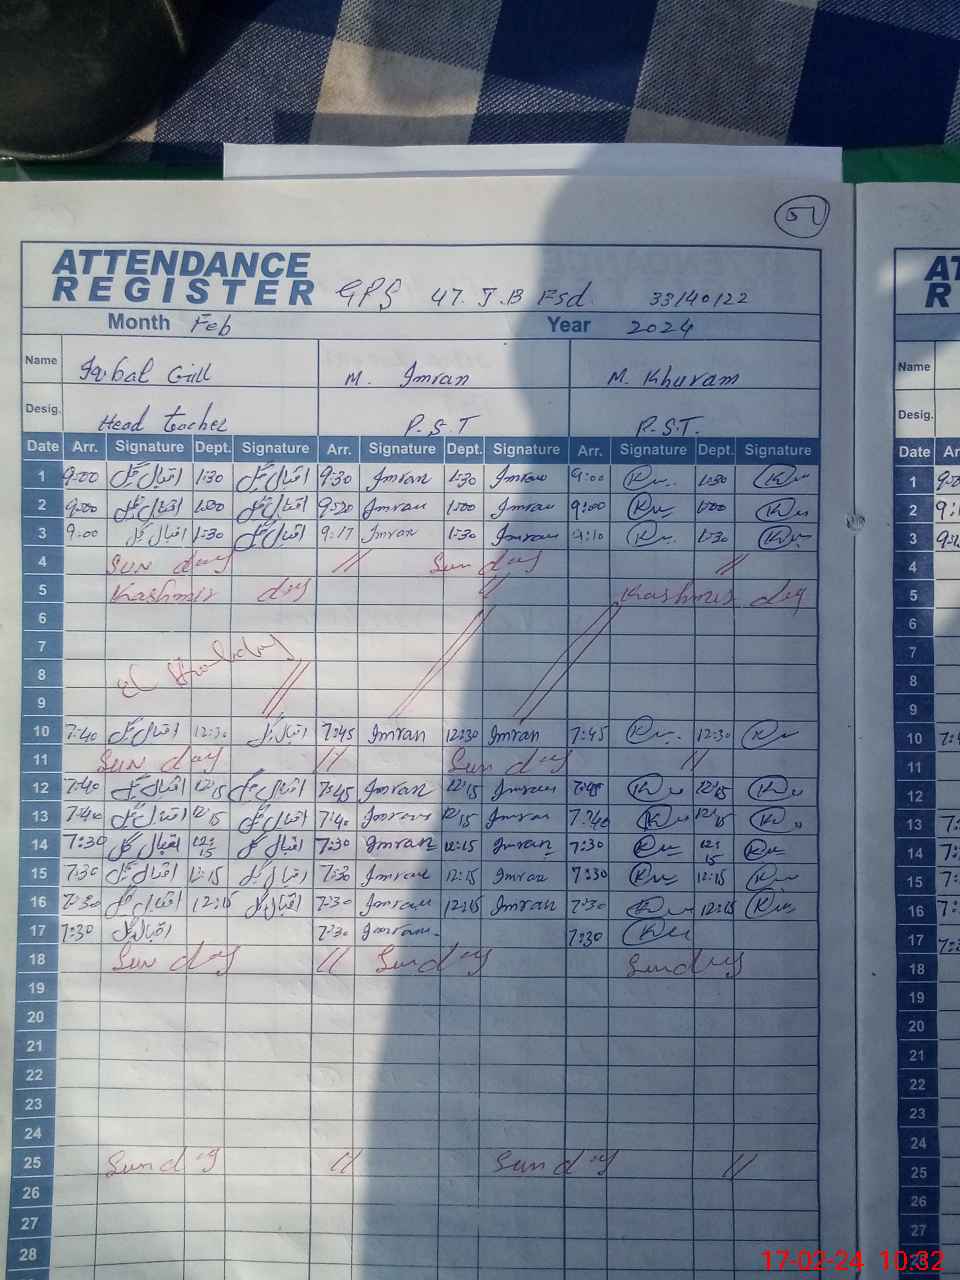 51
ATTENDANCE
REGISTER GPS 47. J.B Fsd. 33140122
Month Feb Year 2024
Name Iqbal Gill M. Imran M. Khuram
Desig. Head teacher P.S.T P.S.T.
Date Arr. Signature Dept. Signature Arr. Signature Dept. Signature Arr. Signature Dept. Signature
1 9:00 اقبال گل 1:30 اقبال گل 9:30 Imran 1:30 Imran 9:00 1:30
2 9:00 اقبال گل 1:00 اقبال گل 9:20 Imran 1:00 Imran 9:00 1:00
3 9:00 اقبال گل 1:30 اقبال گل 9:17 Imran 1:30 Imran 9:10 1:30
4 Sun day // Sun day //
5 Kashmir day // Kashmir day
6
7
8
9
10 7:40 اقبال گل 12:30 اقبال گل 7:45 Imran 12:30 Imran 7:45 12:30
11 Sun day // Sun day //
12 7:40 اقبال گل 12:15 اقبال گل 7:45 Imran 12:15 Imran 7:45 12:15
13 7:40 اقبال گل 12:15 اقبال گل 7:40 Imran 12:15 Imran 7:40 12:15
14 7:30 اقبال گل 12:15 اقبال گل 7:30 Imran 12:15 Imran 7:30 12:15
15 7:30 اقبال گل 12:15 اقبال گل 7:30 Imran 12:15 Imran 7:30 12:15
16 7:30 اقبال گل 12:15 اقبال گل 7:30 Imran 12:15 Imran 7:30 12:15
17 7:30 اقبال گل 7:30 Imran 7:30
18 Sun day // Sunday Sunday
19
20
21
22
23
24
25 Sunday // Sunday //
26
27
28
Name
Desig.
Date
1
2
3
4
5
6
7
8
9
10
11
12
13
14
15
16
17
18
19
20
21
22
23
24
25
26
27
17-02-24 10:32